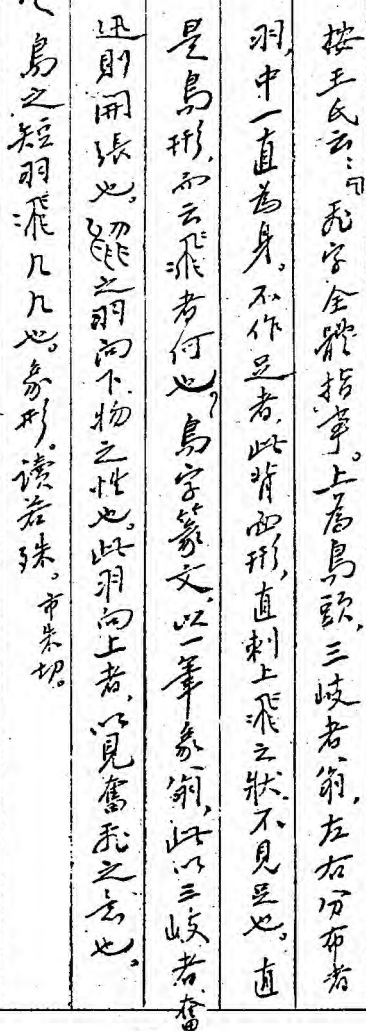 按王氏云：「飛字全體指事。上為鳥頭，三岐者翁，左右分布者
羽，中一直為身。不作足者，此背面形，直刺上飛之狀，不見足也。直
是鳥形，而云飛者何也？鳥字篆文，以一筆象翁，此以三岐者，奮
迅則開張也。毛之羽向下，物之性也。此羽向上者，以見奮飛之意也。
鳥之短羽飛几几也。象形。讀若殊。市朱切。